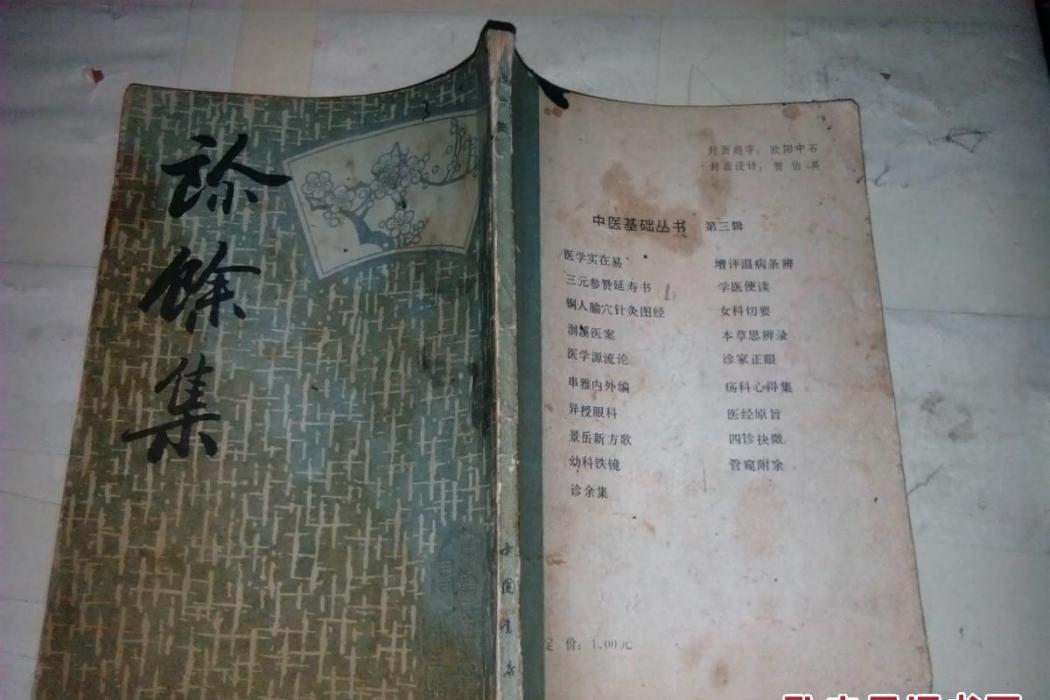 診餘集
中国书店
封面题字：欧阳中石
中医基础丛书 第三辑
医学实在易 增评温病条辨
三元参赞延寿书 学医便读
铜人腧穴针灸图经 女科切要
洄溪医案 本草思辨录
医学源流论 诊家正眼
串雅内外编 疡科心得集
异授眼科 医经原旨
景岳新方歌 四诊抉微
幼科铁镜 管窥附余
诊余集
定价：1.00元